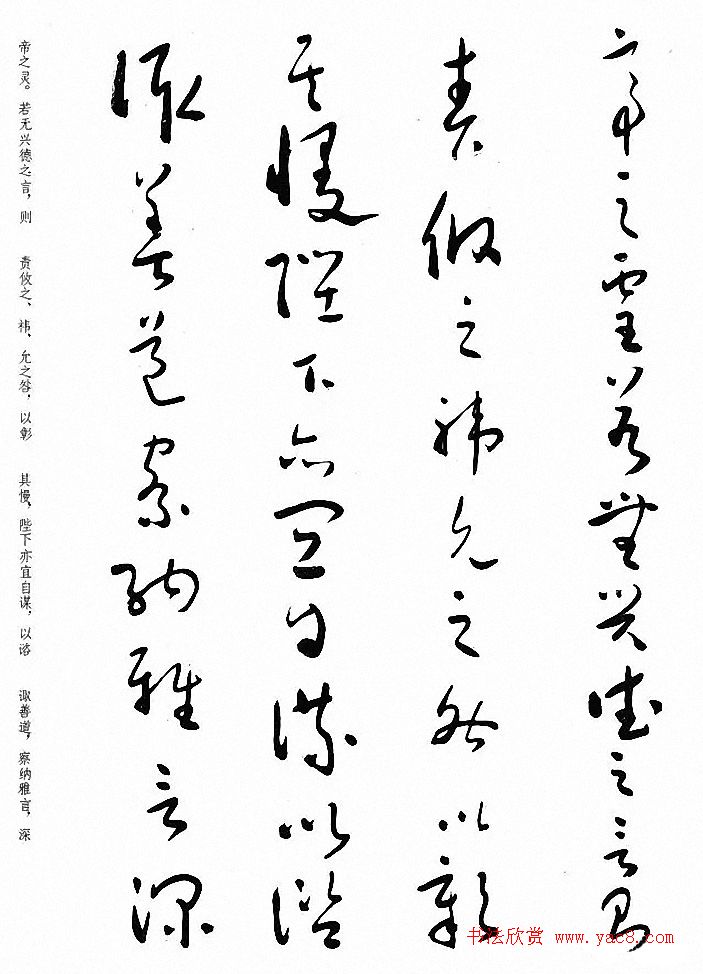 帝之靈若無興德之言則
責攸之禕允之咎以彰
其慢陛下亦宜自謀以諮
諏善道察納雅言深
帝之灵。若无兴德之言，则 责攸之、祎、允之咎，以彰 其慢，陛下亦宜自谋，以谘 诹善道，察纳雅言，深
书法欣赏 www.yac8.com